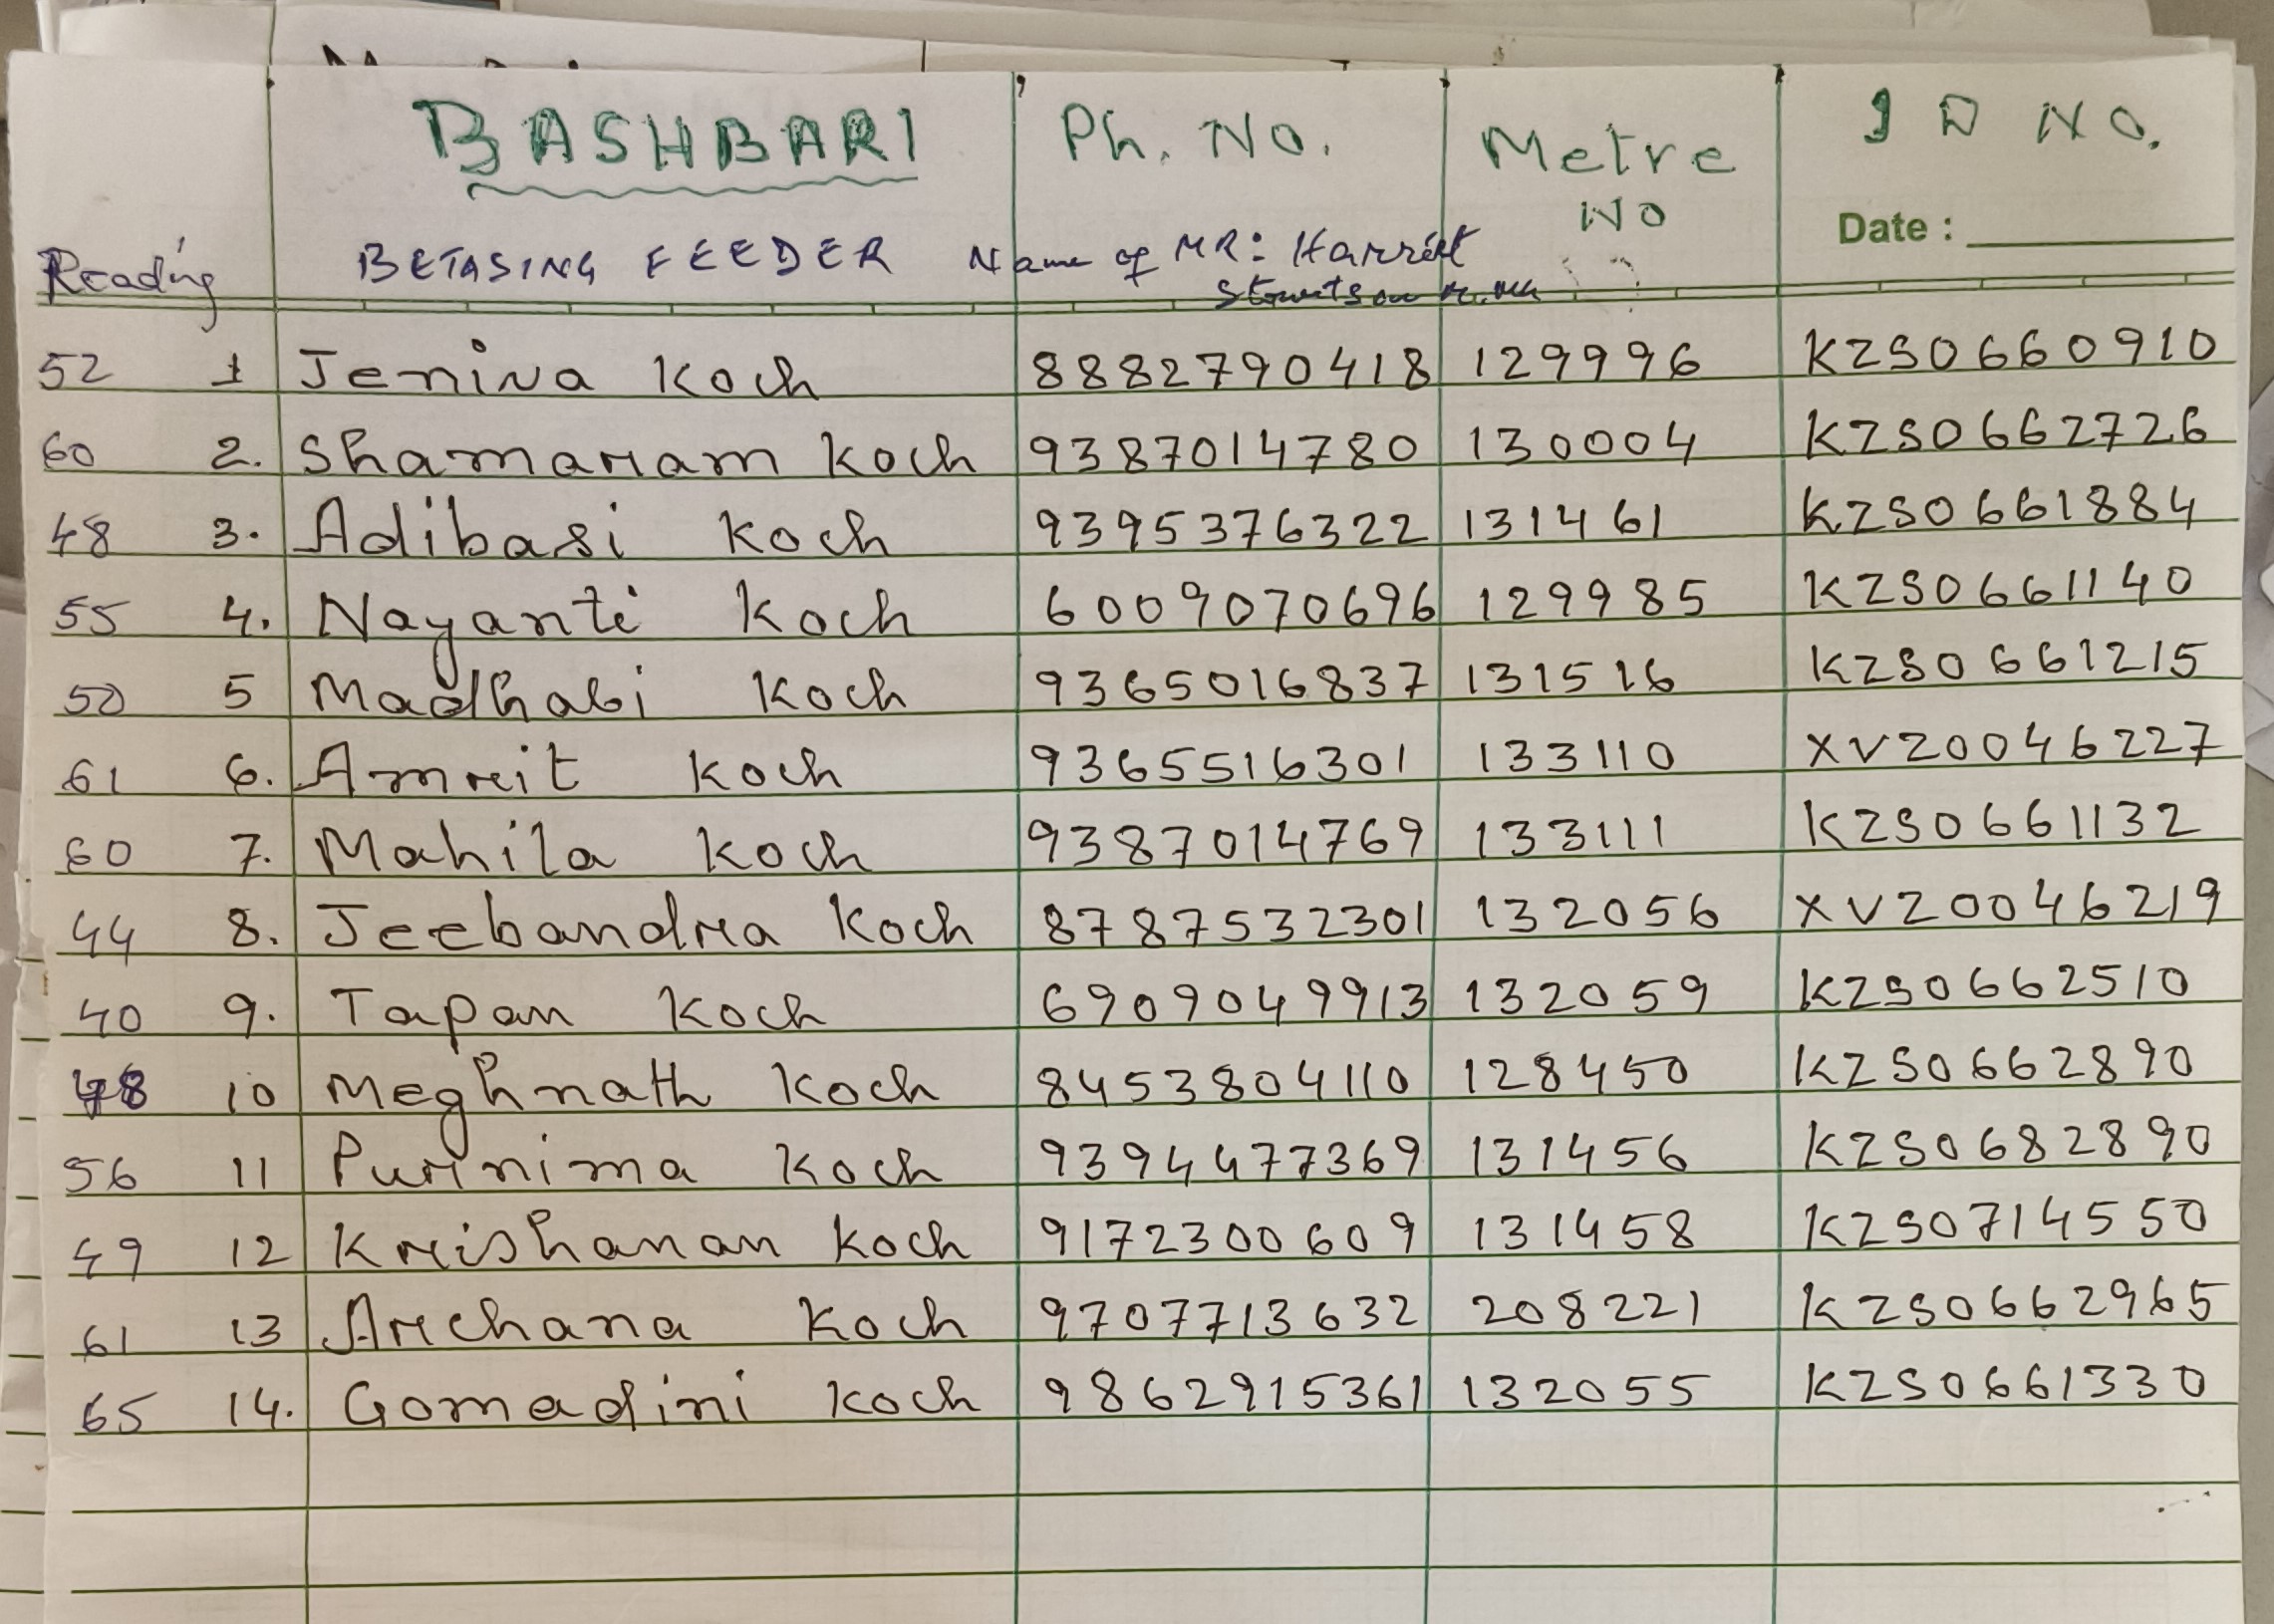 BASHBARI Ph. No. Metre NO ID NO.
Date :
Reading BETASING FEEDER Name of MR: Harriet
52 1 Jenina Koch 8882790418 129996 KZS0660910
60 2. Shamaram Koch 9387014780 130004 KZS0662726
48 3. Adibasi Koch 9395376322 131461 KZS0661884
55 4. Nayanti Koch 6009070696 129985 KZS0661140
50 5 Madhabi Koch 9365016837 131516 KZS0661215
61 6. Amrit Koch 9365516301 133110 XVZ0046227
60 7. Mahila Koch 9387014769 133111 KZS0661132
44 8. Jeebandra Koch 8787532301 132056 XVZ0046219
40 9. Tapan Koch 6909049913 132059 KZS0662510
48 10 Meghnath Koch 8453804110 128450 KZS0662890
56 11 Purnima Koch 9394477369 131456 KZS0682890
49 12 Krishanan Koch 9172300609 131458 KZS0714550
61 13 Archana Koch 9707713632 208221 KZS0662965
65 14. Gomadini Koch 9862915361 132055 KZS0661330